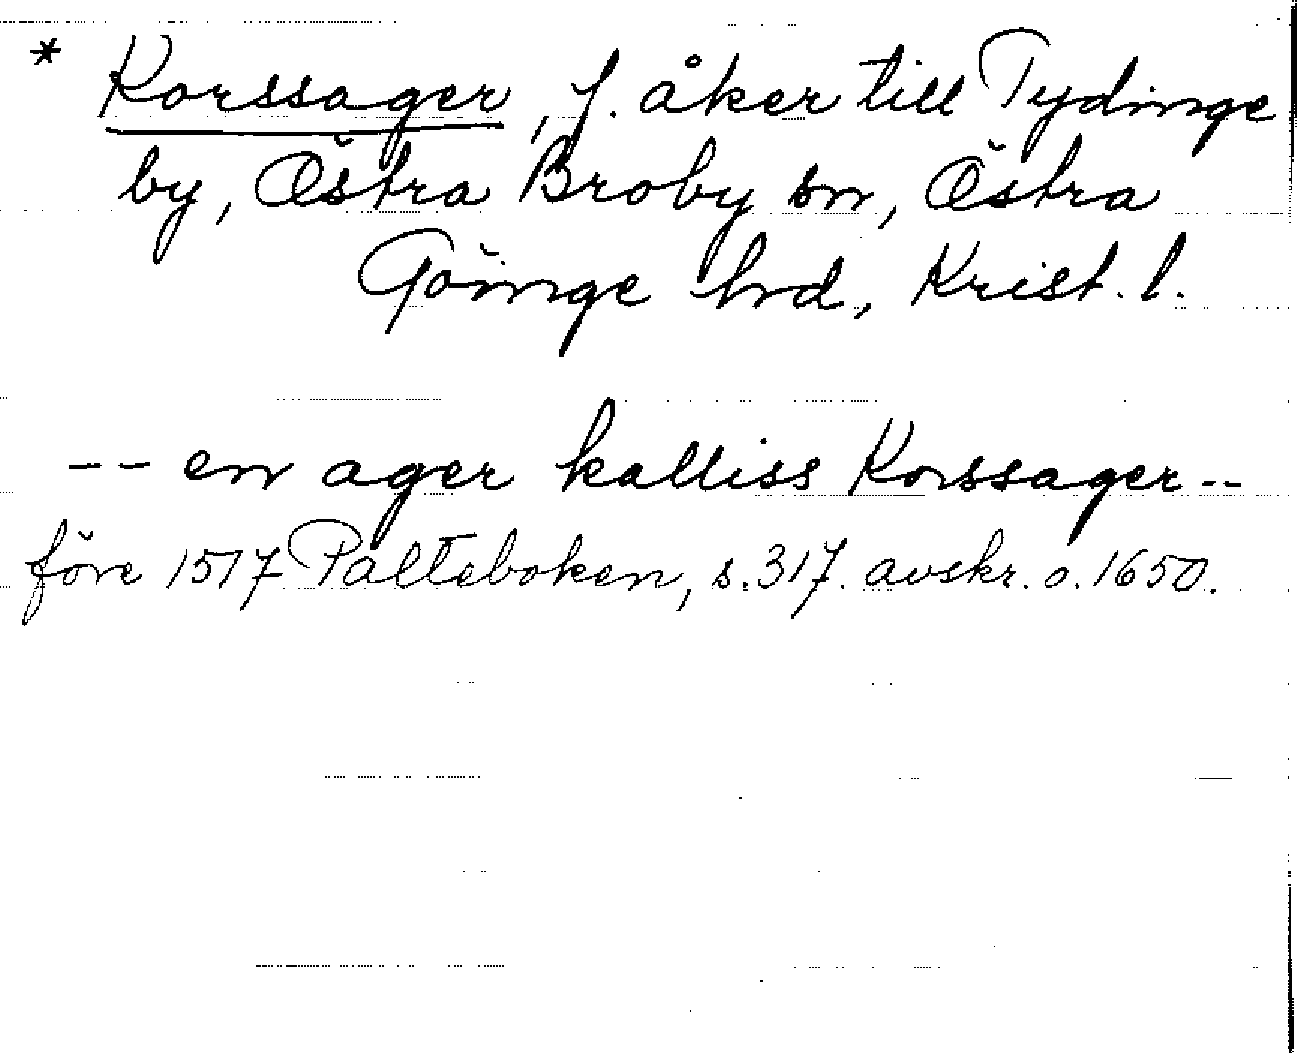 * Korssager, f. åker till Tydinge
by, Östra Broby sn, Östra
Göinge hrd, Krist. l.
-- en ager kalliss Korssager --
före 1517 Palteboken, s. 317. avskr. o. 1650.